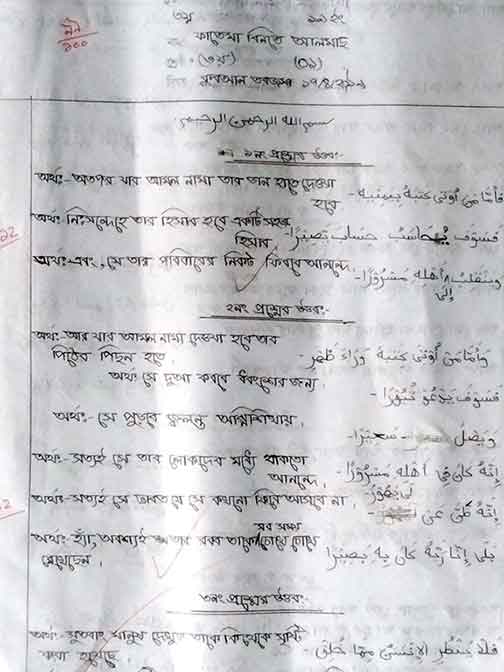 ৯৯
১০০
৩য় ১৯ ইং
ফাতেমা বিনতে আলমাছ
(৩য়) (০৯)
কুরআন তরজমা
بسم الله الرحمن الرحيم
১নং প্রশ্নের উত্তর:-
অর্থ:- অতপর যার আমল নামা তার ডান হাতে দেওয়া হবে
فأما من أوتى كتبه بيمينه -
অর্থ: নিঃসন্দেহে তার হিসাব হবে একটি সহজ হিসাব,
فسوف يحاسب حساب يصيرا -
অর্থ:- এবং, সে তার পরিবারের নিকট ফিরবে আনন্দে,
وينقلب إلى أهله مسرورا -
২নং প্রশ্নের উত্তর:-
অর্থ:- আর যার আমল নামা দেওয়া হবে তার পিঠের পিছন হতে,
وأما من أوتى كتبه وراء ظهر -
অর্থ: সে দুআ করবে ধ্বংশের জন্য,
فسوف يدعو ثبورا -
অর্থ:- সে পুড়বে জ্বলন্ত অগ্নিশিখায়,
ويصل سعيرا -
অর্থ:- সত্যই সে তার লোকদের মধ্যে থাকতো আনন্দে,
إنه كان في أهله مسرورا -
অর্থ:- সত্যই সে ভাবত যে সে কখনো ফিরে আসবে না,
إنه ظن عن لن يحور -
অর্থ:- হ্যাঁ, অবশ্যই তার রব তাকে সব সময় চোখে চোখে রেখেছেন,
بلى إن ربه كان به بصيرا
৩নং প্রশ্নের উত্তর:-
অর্থ:- সুতরাং মানুষ দেখুক তাকে কি থেকে সৃষ্টি করা হয়েছে,
فلينظر الإنسن مما خلق -